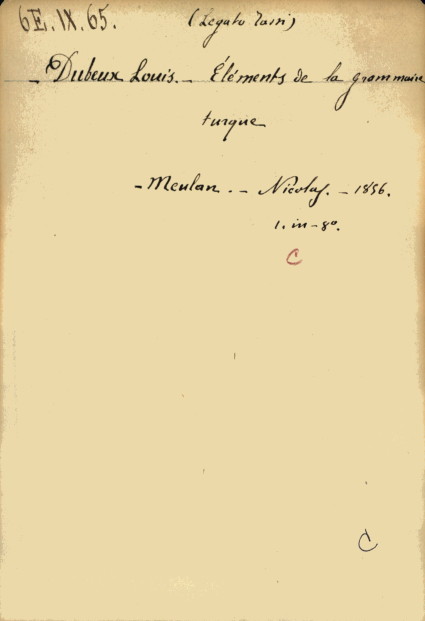 6E.IX.65.
(Legato Tassi)
- Dubeux Louis. - Éléments de la grammaire
turque
- Meulan. - Nicolas. - 1856.
1. in-8º.
C
C